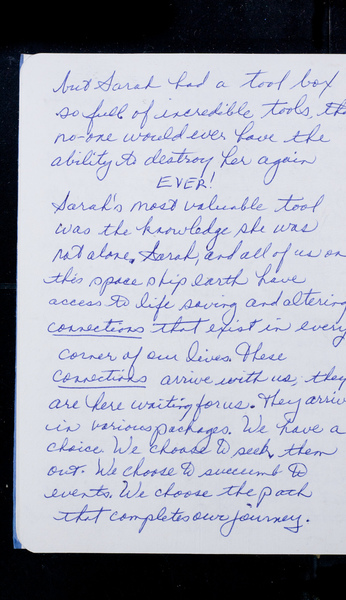 but Sarah had a tool box
so full of incredible tools, tha
no-one would ever have the
ability to destroy her again
EVER!
Sarah's most valuable tool
was the knowledge she was
not alone. Sarah, and all of us on
this space ship earth have
access to life saving and altering
connections that exist in every
corner of our lives. These
connections arrive with us; they
are here waiting for us. They arrive
in various packages. We have a
choice. We choose to seek them
out. We choose to succumb to
events. We choose the path
that completes our journey.